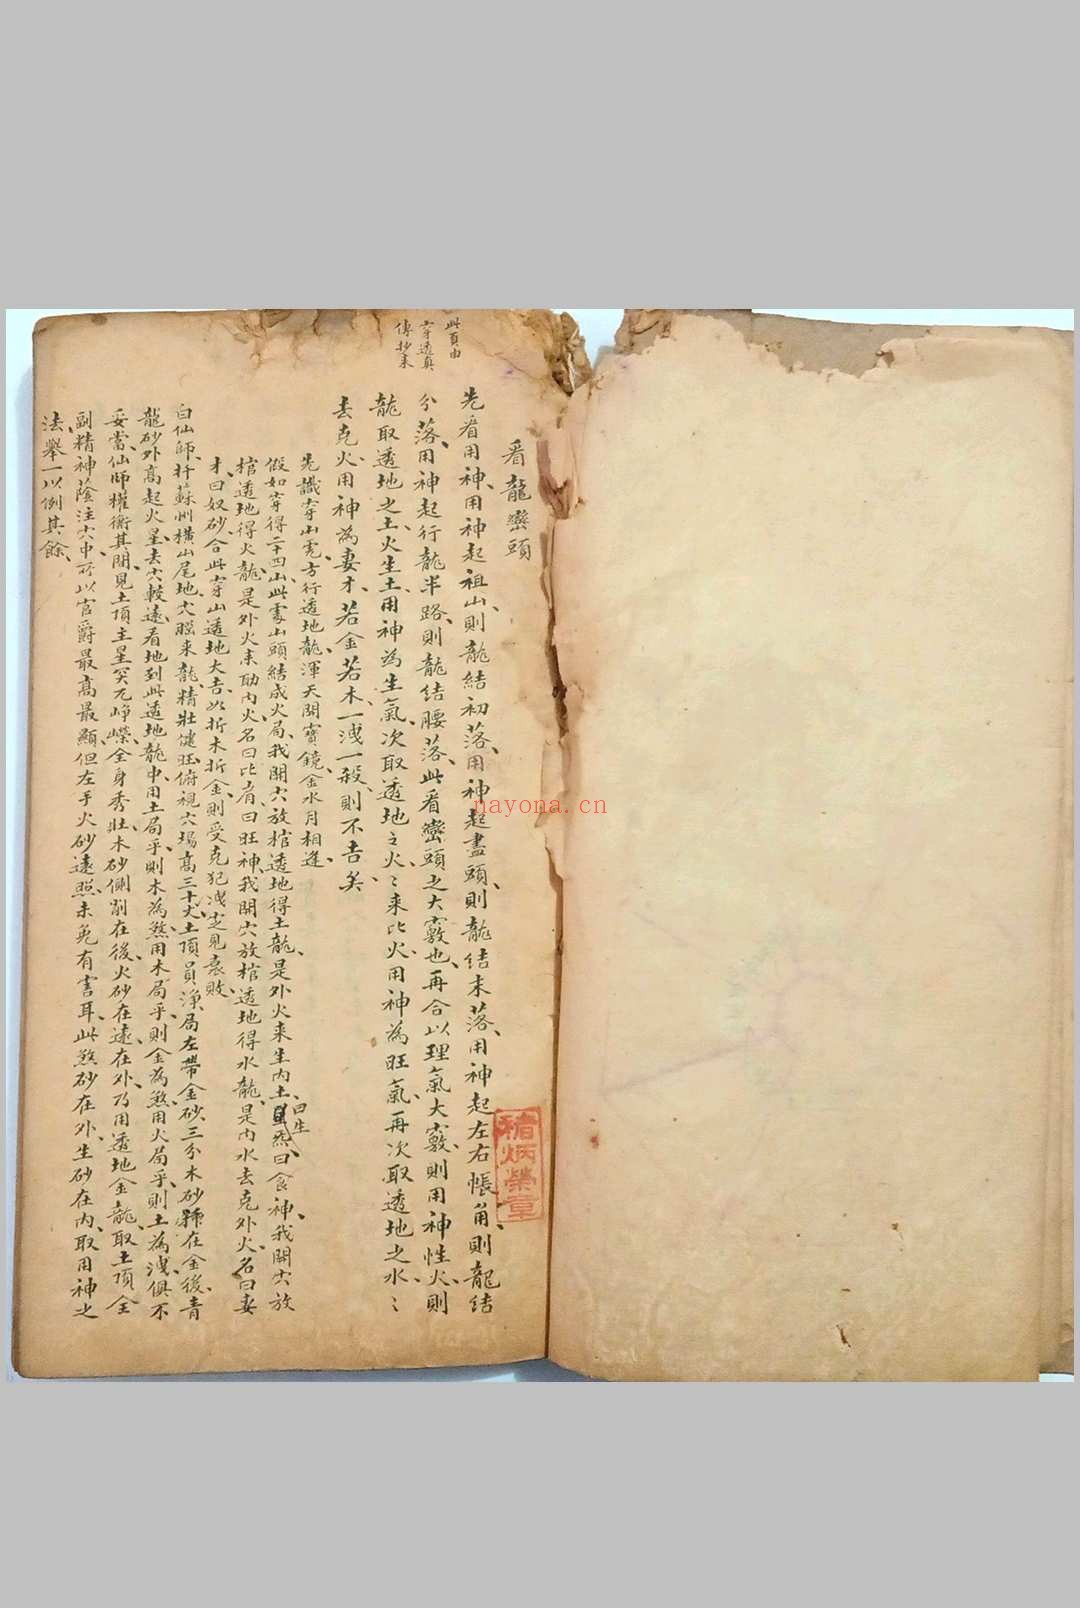 此頁由
穿透真
傳抄來
看龍巒頭
先看用神、用神起祖山、則龍結初落、用神起盡頭、則龍結末落、用神起左右帳角、則龍結
分落、用神起行龍半路、則龍結腰落、此看巒頭之大竅也、再合以理氣大竅、則用神性火、則
龍取透地之土、火生土、用神為生氣、次取透地之火、火來比火、用神為旺氣、再次取透地之水、水
去克火、用神為妻才、若金若木、一洩一殺、則不吉矣、
先識穿山虎、方行透地龍、渾天開寶鏡、金水月相逢、
假如穿得二十四山、此處山頭結成火局、我開穴放棺、透地得土龍、是外火來生内土、曰生 曰食神、我開穴放
棺、透地得火龍、是外火來助内火、名曰比肩、曰旺神、我開穴放棺、透地得水龍、是内水去克外火、名曰妻
才、曰奴砂、合此穿山透地大吉、如折木折金、則受克犯洩、定見衰敗、
白仙師、扦蘇州橫山尾地、穴腦来龍、精壯健旺、俯視穴塲、高三十丈、土頂員淨、局左帶金砂、三分木砂 在金後、青
龍砂外、高起火星、去穴較遠、看地到此、透地龍中、用土局乎、則木為煞、用木局乎、則金為煞、用火局乎、則土為洩、俱不
妥當、仙師權衡其間、見土頂主星、突兀崢嶸、全身秀壯、木砂側削在後、火砂在遠在外、乃用透地金龍、取土頂全
副精神、蔭注穴中、可以官爵最高最顯、但左手火砂遠照、未免有害耳、此煞砂在外、生砂在内、取用神之
法、舉一以例其餘、
炳榮章
nayona.cn